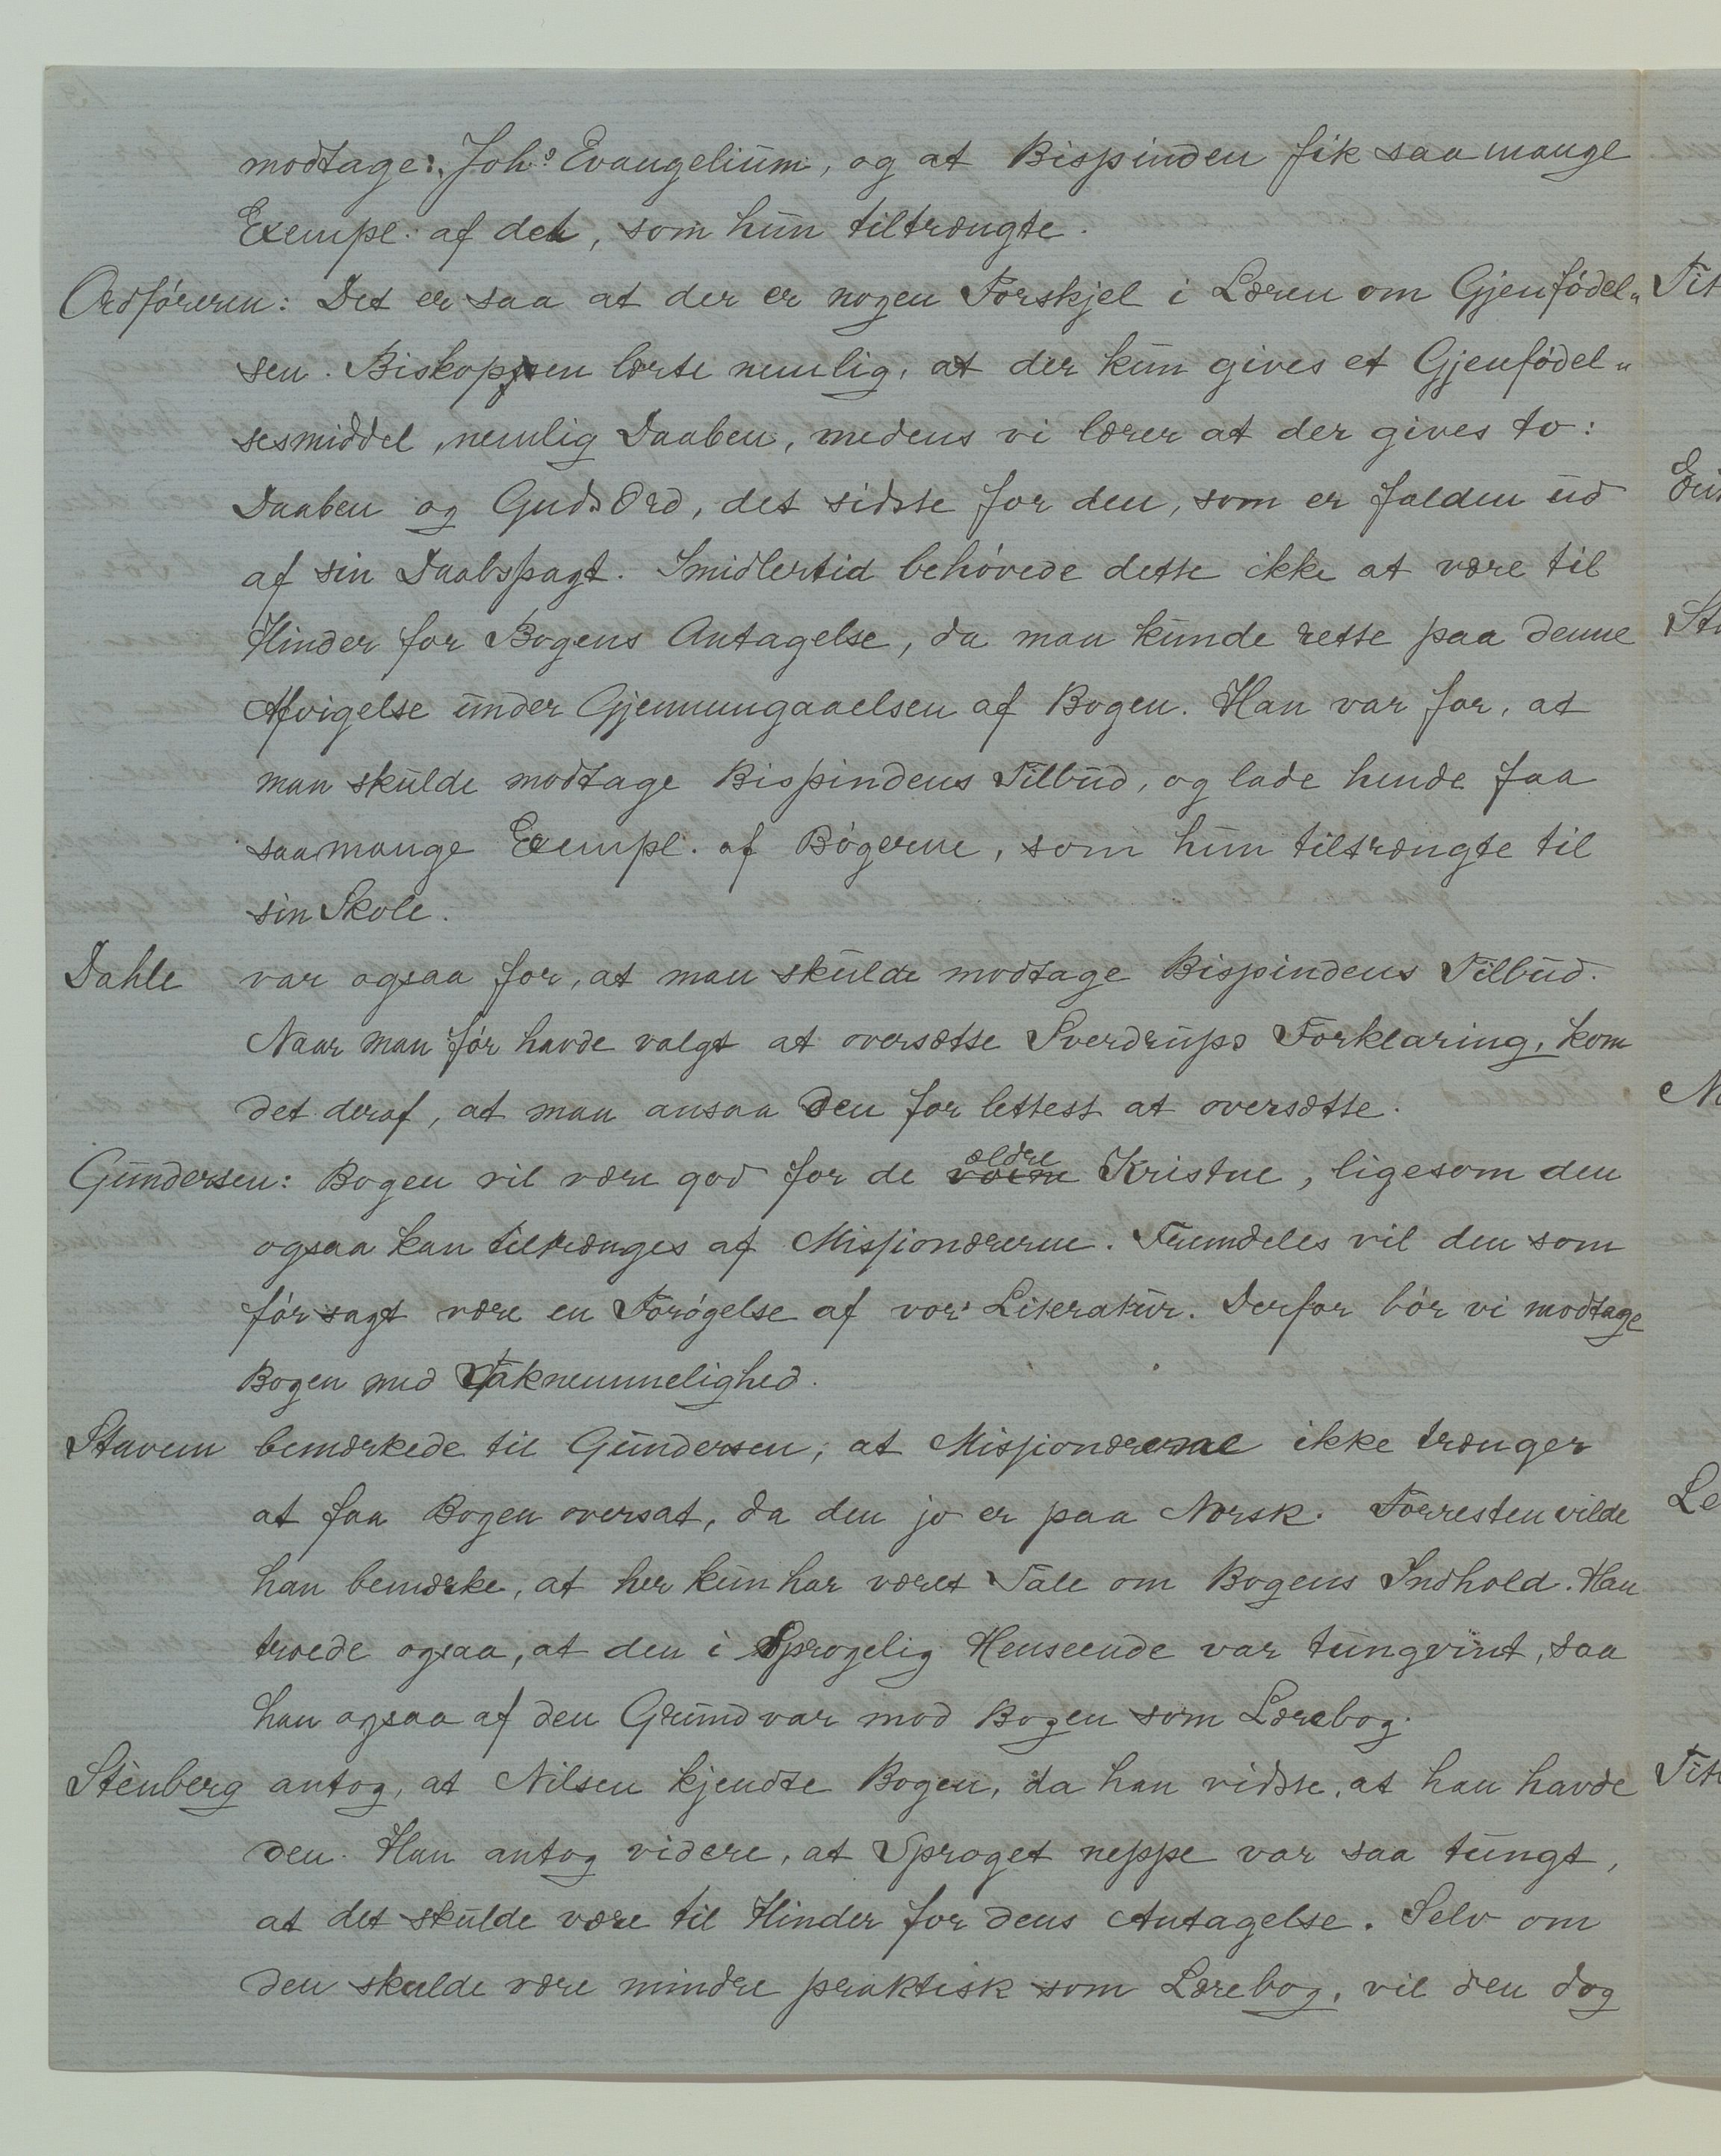 modtage: Johs Evangelium, og at Bispinden fik saa mange
Exempl. af det, som hun tiltrængte.
Ordføreren: Det er saa at der er nogen Forskjel i Læren om Gjenfødel„
sen. Biskoppen lærte nemlig, at der kun gives et Gjenfødel„
sesmiddel, nemlig Daaben, medens vi lærer at der gives to:
Daaben og Guds Ord, det sidste for den, som er falden ud
af sin Daabspagt. Imidlertid behøvede dette ikke at være til
Hinder for Bogens Antagelse, da man kunde rette paa denne
Afvigelse under Gjennumgaaelsen af Bogen. Han var for, at
man skulde modtage Bispindens Tilbud, og lade hende faa
saa mange Exempl. af Bøgerne, som hun tiltrængte til
sin Skole.
Dahle var ogsaa for, at man skulde modtage Bispindens Tilbud.
Naar man før havde valgt at oversætte Sverdrups Forklaring, kom
det deraf, at man ansaa den for lettest at oversætte.
Gundersen: Bogen vil være god for de ældre Kristne, ligesom den
ogsaa kan tiltrænges af Missionærerne. Fremdeles vil den som
før sagt være en Forøgelse af vor Literatur. Derfor bør vi modtage
Bogen med Taknemmelighed.
Stavem bemærkede til Gundersen, at Missionærerne ikke trænger
at faa Bogen oversat, da den jo er paa Norsk. Forresten vilde
han bemærke, at her kun har været Tale om Bogens Indhold. Han
troede ogsaa, at den i Sprogelig Henseende var tungvint, saa
han ogsaa af den Grund var mod Bogen som Lærebog.
Stenberg antog, at Nilsen kjendte Bogen, da han vidste, at han havde
den. Han antog videre, at Sproget neppe var saa tungt,
at det skulde være til Hinder for dens Antagelse. Selv om
den skulde være mindre praktisk som Lærebog, vil den dog